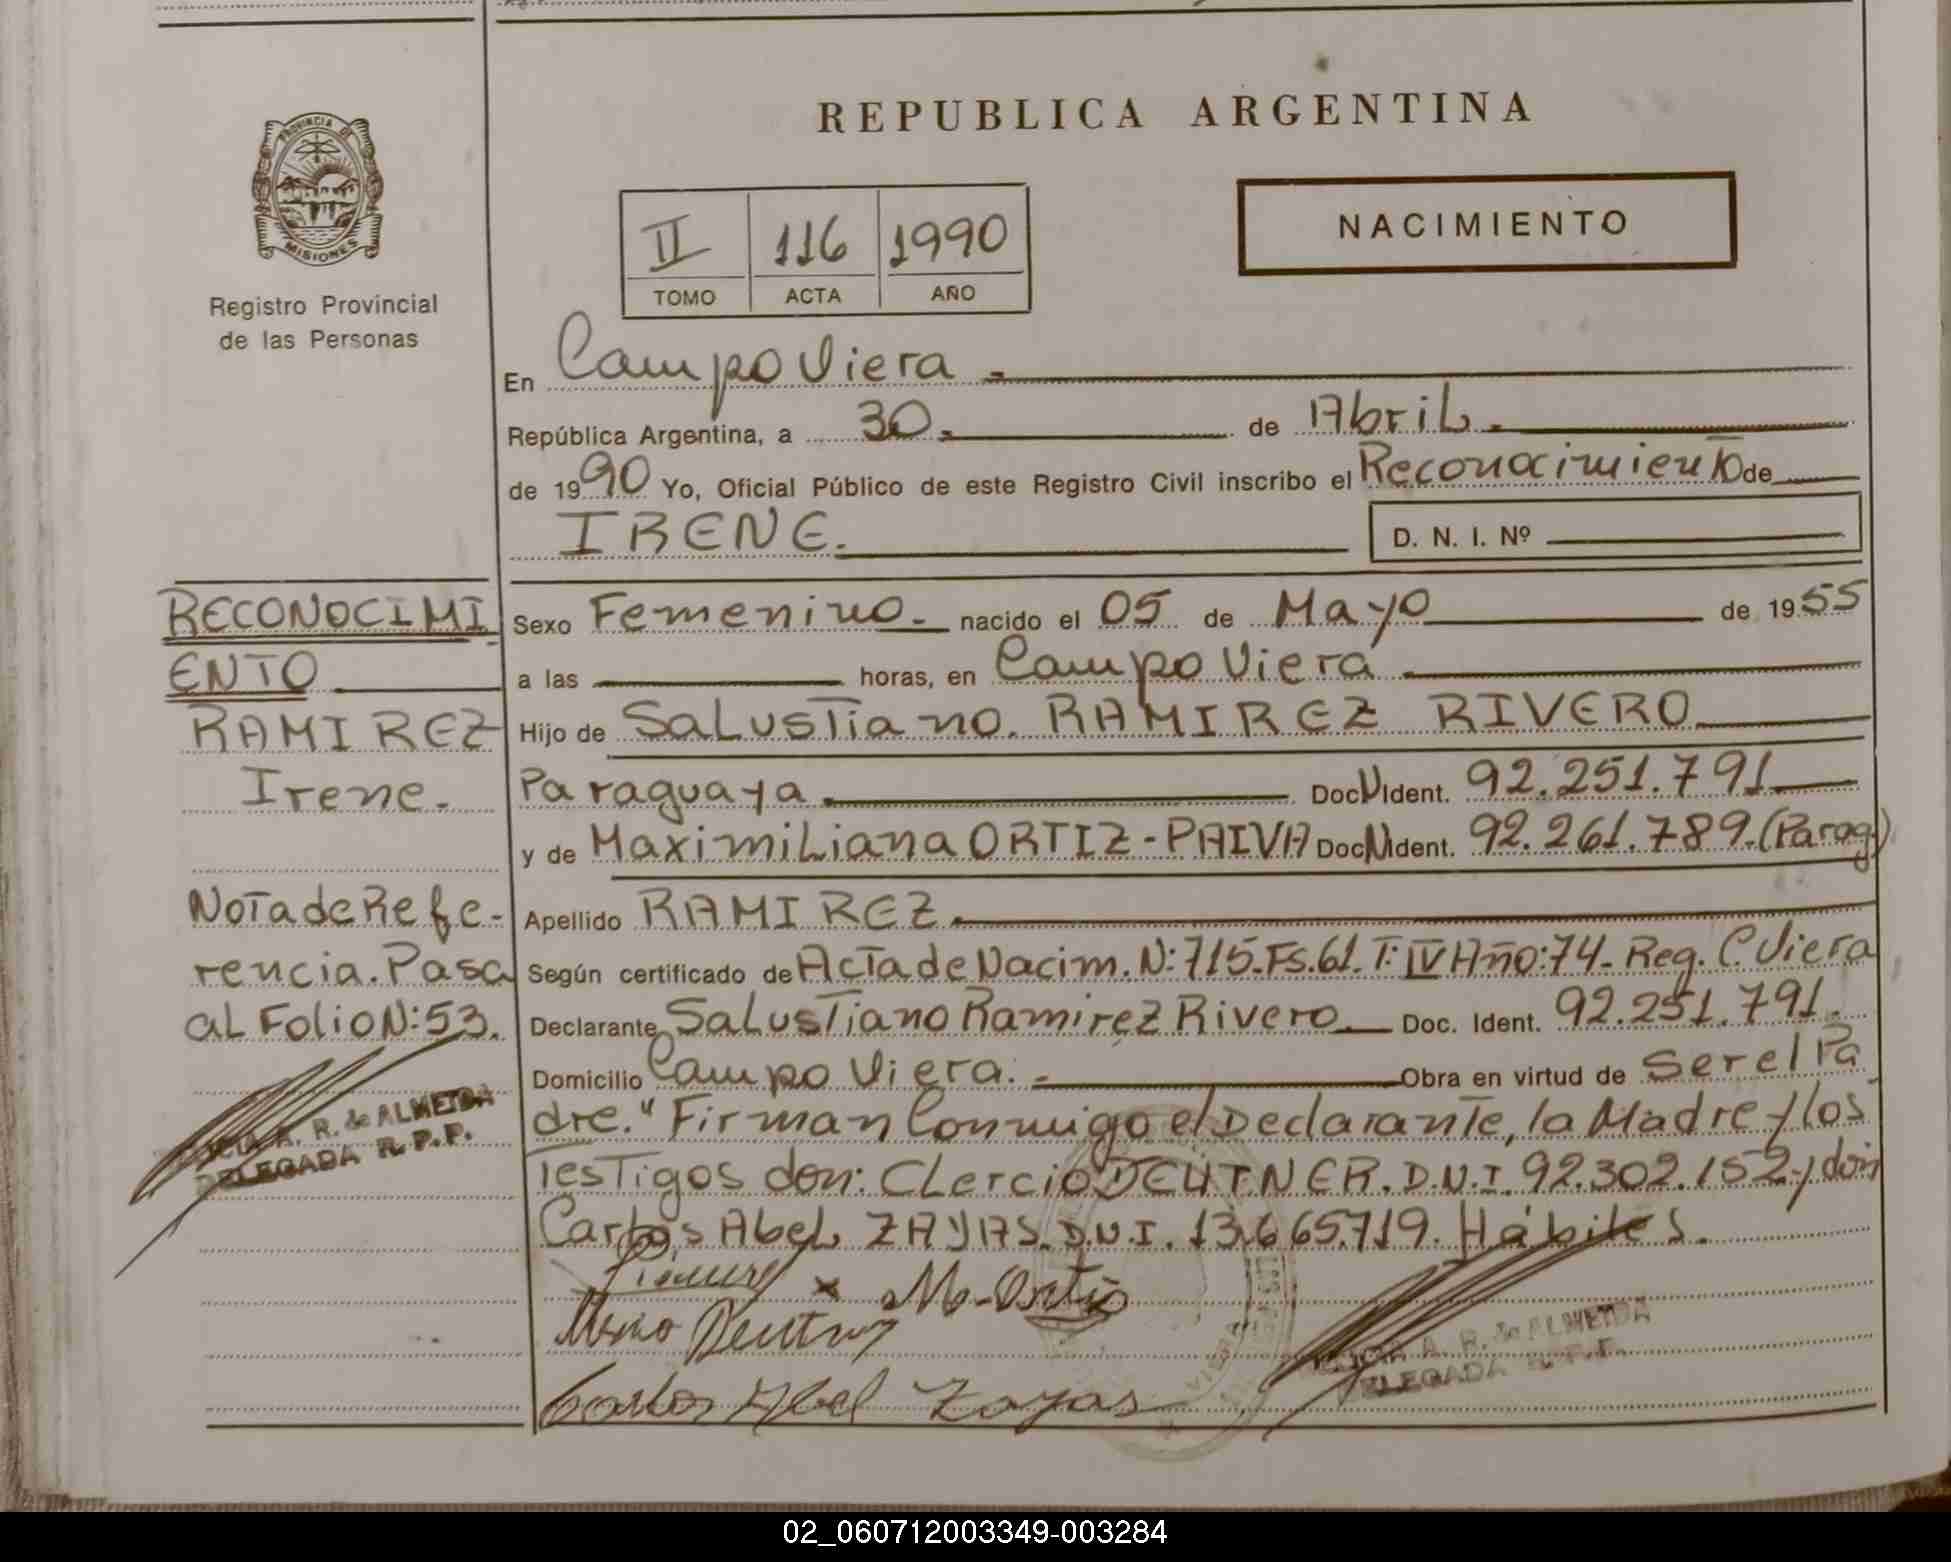 REPUBLICA ARGENTINA
PROVINCIA DE
MISIONES
Registro Provincial
de las Personas
II 116 1990
TOMO ACTA AÑO
NACIMIENTO
En Campo Viera
República Argentina, a 30 de Abril
de 1990 Yo, Oficial Público de este Registro Civil inscribo el Reconocimiento de
IRENE. D. N. I. Nº
RECONOCIMI
ENTO
RAMIREZ
Irene.
Nota de Refe-
rencia. Pasa
al Folio N: 53.
R. de ALMEIDA
DELEGADA R. P. P.
Sexo Femenino. nacido el 05 de Mayo de 1955
a las horas, en Campo Viera
Hijo de Salustiano. RAMIREZ RIVERO
Paraguaya. Doc N Ident. 92.251.791
y de Maximiliana ORTIZ-PAIVA Doc N Ident. 92.261.789.(Parag)
Apellido RAMIREZ.
Según certificado de Acta de Nacim. N: 715. Fs. 61. T: IV Año: 74. Reg. C. Viera
Declarante Salustiano Ramirez Rivero. Doc. Ident. 92.251.791.
Domicilio Campo Viera. Obra en virtud de Ser el Pa
dre." Firman Conmigo el Declarante, la Madre y los
Testigos don: Clercio DEUTNER. D.N.I. 92.302.152 y don
Carlos Abel ZAYAS. D.N.I. 13.665.719. Hábiles.
x M-Ortiz
Carlos Abel Zayas
A. R. de ALMEIDA
DELEGADA R. P. P.
02_060712003349-003284